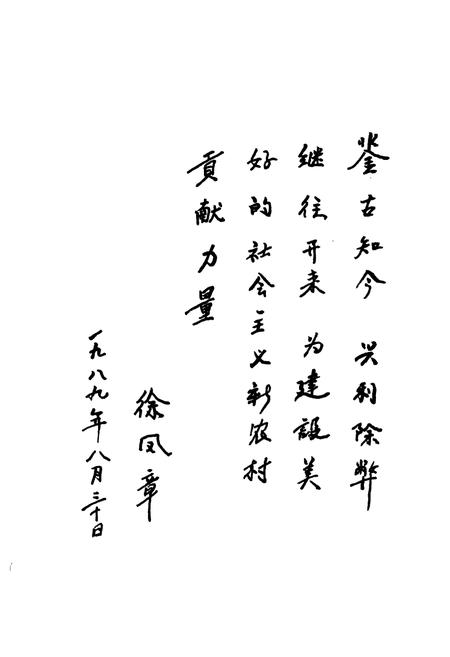 鉴古知今 兴利除弊
继往开来 为建設美
好的社会主义新农村
貢献力量
徐凤章
一九八九年八月三十日